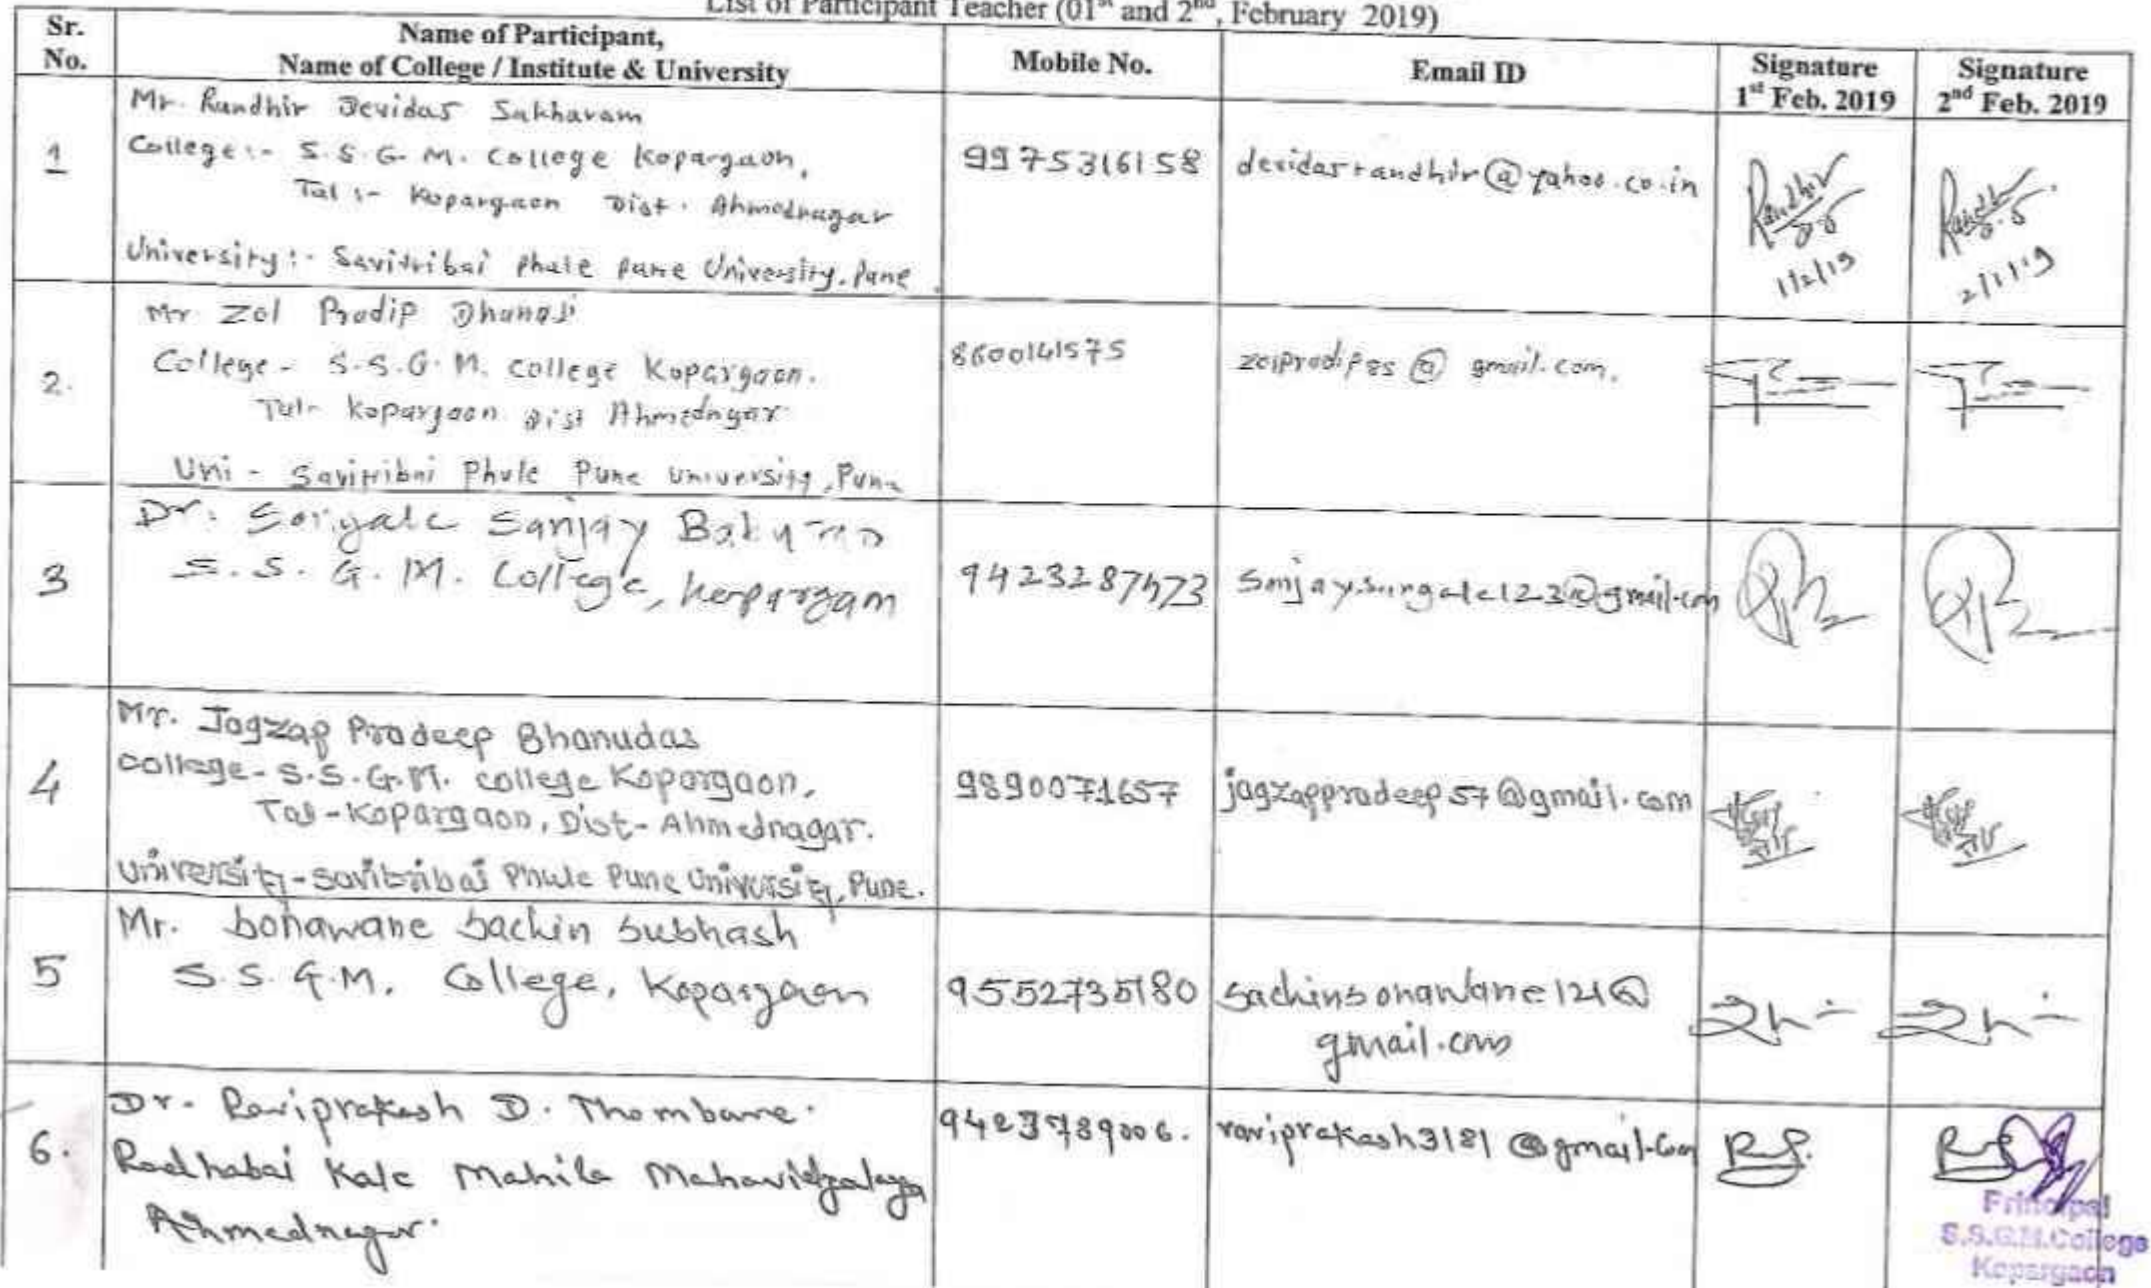 List of Participant Teacher (01st and 2nd, February 2019)
Sr. No.
Name of Participant,
Name of College / Institute & University
Mobile No.
Email ID
Signature
1st Feb. 2019
Signature
2nd Feb. 2019
1
Mr. Randhir Devidas Sakharam
College:- S.S.G.M. College Kopargaon,
Tal :- Kopargaon Dist. Ahmednagar
University:- Savitribai Phule Pune University, Pune
9975316158
devidasrandhir@yahoo.co.in
Randhir
1/2/19
2.
Mr Zol Pradip Dhanaji
College - S.S.G.M. College Kopargaon.
Tal- Kopargaon Dist Ahmednagar
Uni - Savitribai Phule Pune University, Pune
8600141575
zolpradip85@gmail.com.
3
Dr. Sanjay
S.S.G.M. College, Kopargaon
4
Mr. Jagzap Pradeep Bhanudas
college- S.S.G.M. college Kopargaon,
Tal-Kopargaon, Dist-Ahmednagar.
University-Savitribai Phule Pune University, Pune.
9890071657
jagzappradeep57@gmail.com
5
Mr. Sonawane Sachin Subhash
S.S.G.M. College, Kopargaon
9552735180
sachinsonawane121@
gmail.com
6.
Dr. Raviprakash D. Thombare.
Radhabai Kale Mahila Mahavidyalaya
Ahmednagar.
9423789006.
raviprakash3181@gmail.com
Principal
S.S.G.M.College
Kopargaon